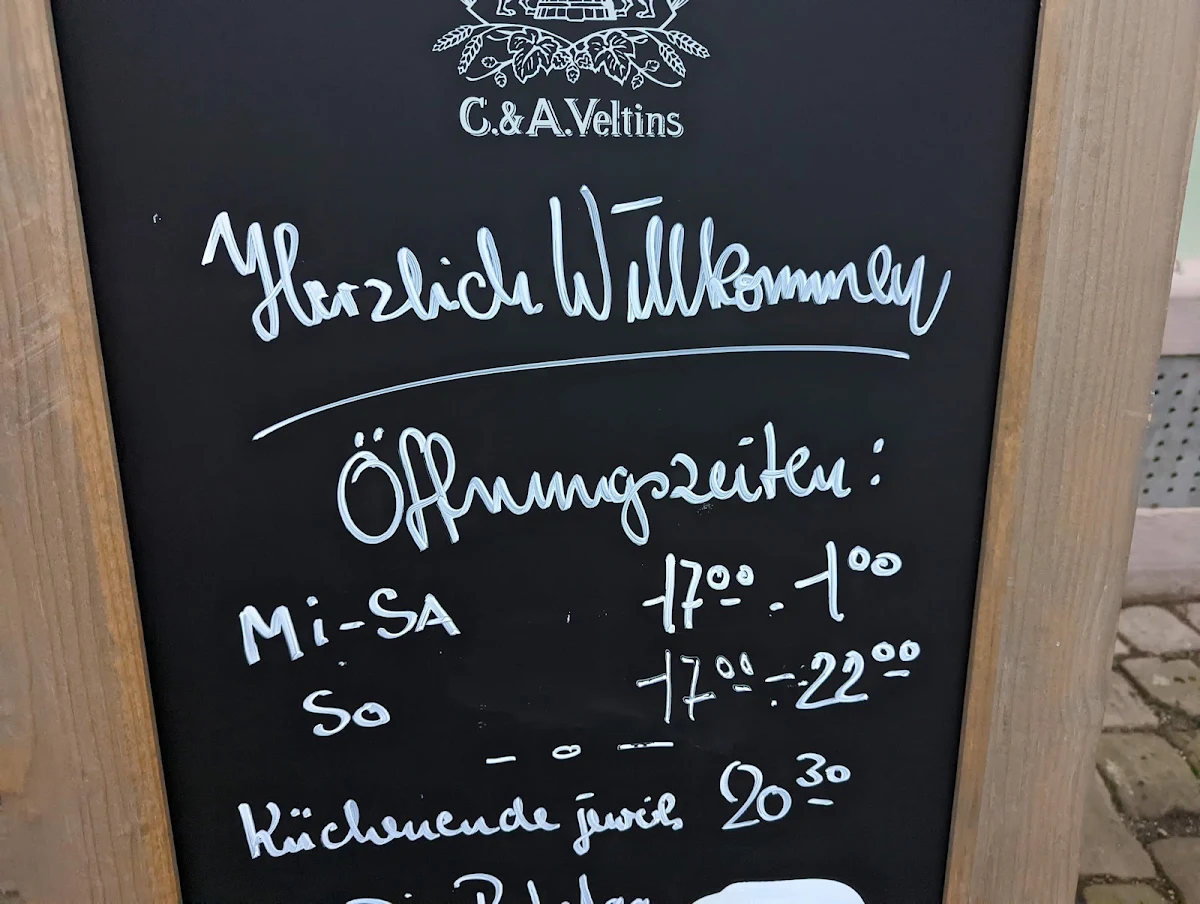 C.&A.Veltins
Herzlich Willkommen
Öffnungszeiten:
Mi-SA 17 00 - 1 00
So 17 00 - 22 00
- o -
Küchenende jeweils 20 30